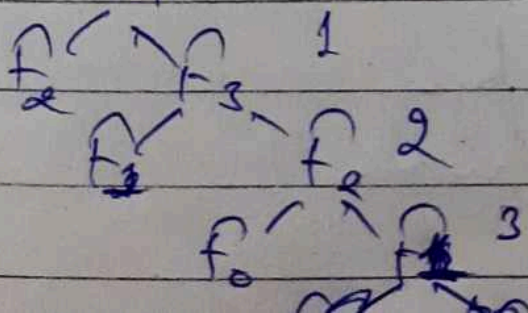 f₂ f₃ 1
f₁ f₂ 2
f₀ f 3